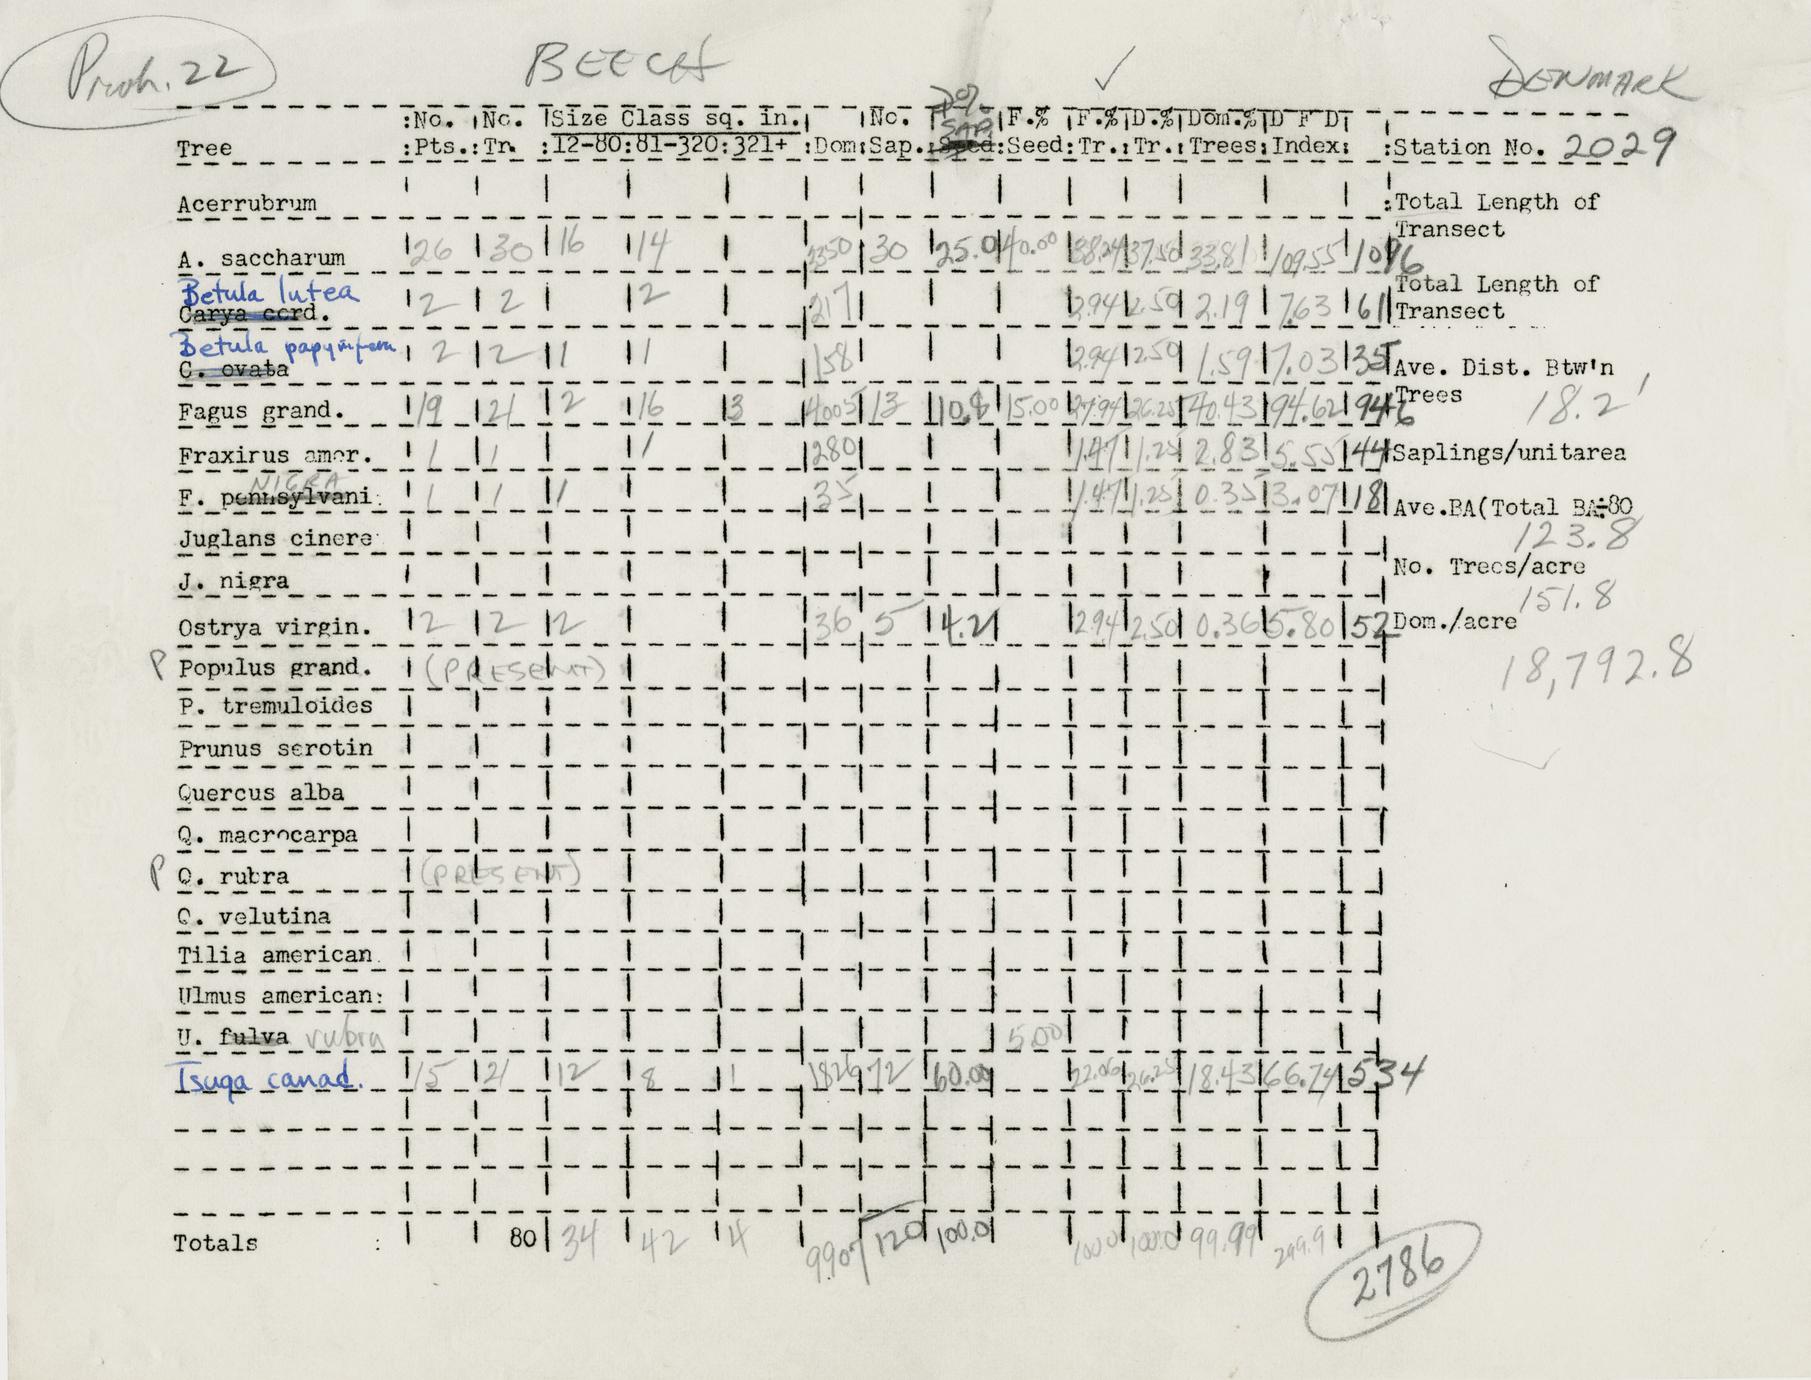 Prob. 22 BEECH ✓ DENMARK
:No. No. Size Class sq. in. No. D% SAP F.% F.% D.% Dom.% D F D
Tree :Pts.:Tr. :12-80:81-320:321+ :Dom:Sap.:Seed:Seed:Tr.:Tr.:Trees:Index: :Station No. 2029
Acerrubrum :Total Length of
Transect
A. saccharum 26 30 16 14 3350 30 25.0 40.00 38.24 37.50 33.81 109.55 1096
Betula lutea Total Length of
Carya cord. 2 2 2 217 2.94 2.50 2.19 7.63 61 Transect
Betula papyrifera 2 2 1 1 158 2.94 2.50 1.59 7.03 35 Ave. Dist. Btw'n
C. ovata
Trees 18.2'
Fagus grand. 19 21 2 16 3 4005 13 10.8 15.00 27.94 26.25 40.43 94.62 946
Fraxirus amer. 1 1 1 280 1.47 1.25 2.83 5.55 44 Saplings/unitarea
NIGRA
F. pennsylvani: 1 1 1 35 1.47 1.25 0.35 3.07 18 Ave.BA(Total BA÷80
123.8
Juglans cinere
No. Trees/acre
J. nigra
151.8
Ostrya virgin. 2 2 2 36 5 4.2 2.94 2.50 0.36 5.80 52 Dom./acre
18,792.8
P Populus grand. (PRESENT)
P. tremuloides
Prunus serotin
Quercus alba
Q. macrocarpa
P Q. rubra (PRESENT)
Q. velutina
Tilia american.
Ulmus american:
U. fulva rubra 5.00
Tsuga canad. 15 21 12 8 1 1826 72 60.00 22.06 26.25 18.43 66.74 534
Totals : 80 34 42 4 9907 120 100.0 100.0 100.0 99.99 299.9
2786